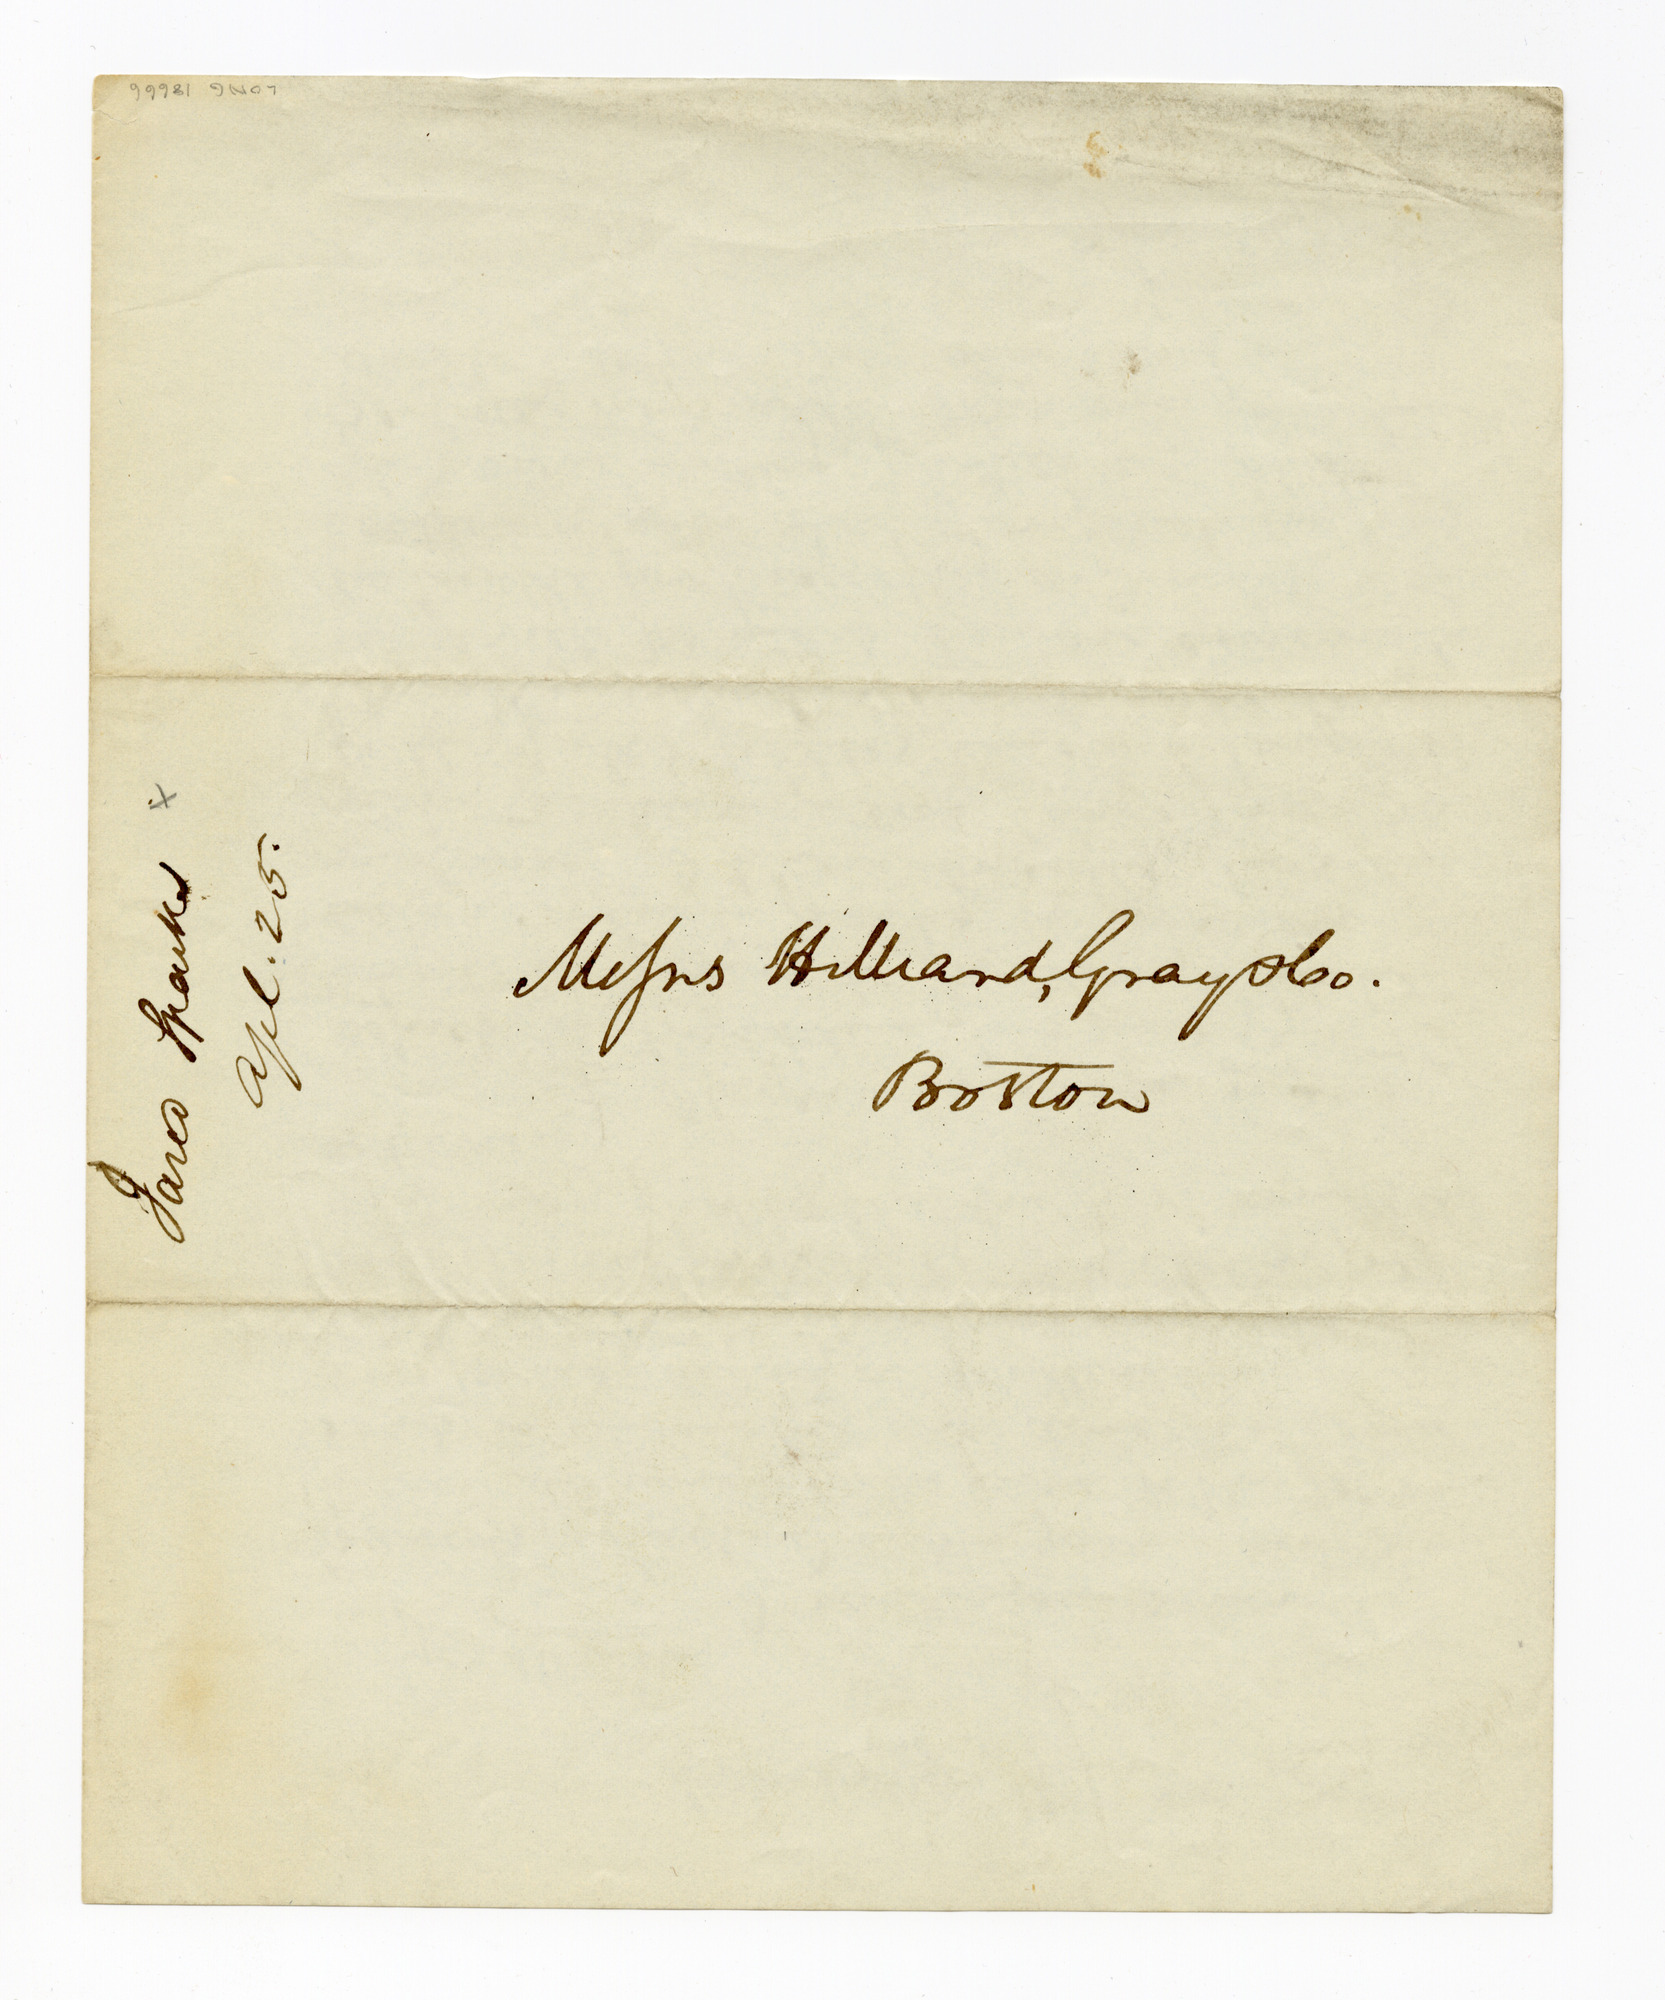 LONG 18666
Jared Sparks
Apl. 25.
Messrs Hilliard, Gray & Co.
Boston